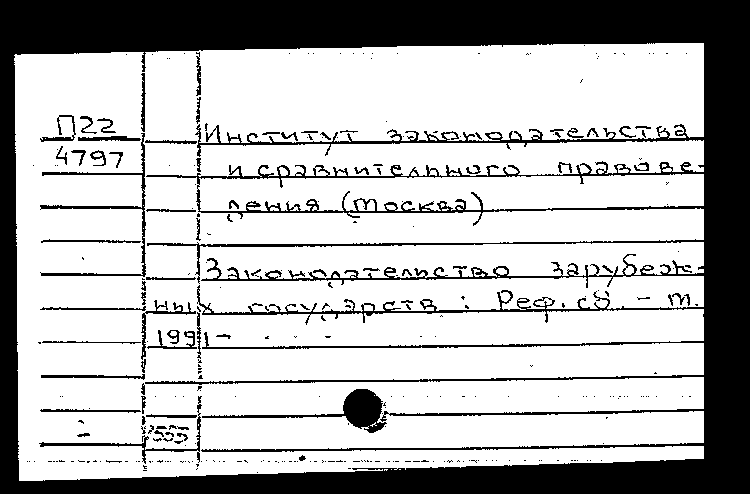 П22
4797
Институт законодательства
и сравнительного правове-
дения (Москва)
Законодательство зарубеж-
ных государств : Реф. сб. - М.
1991-